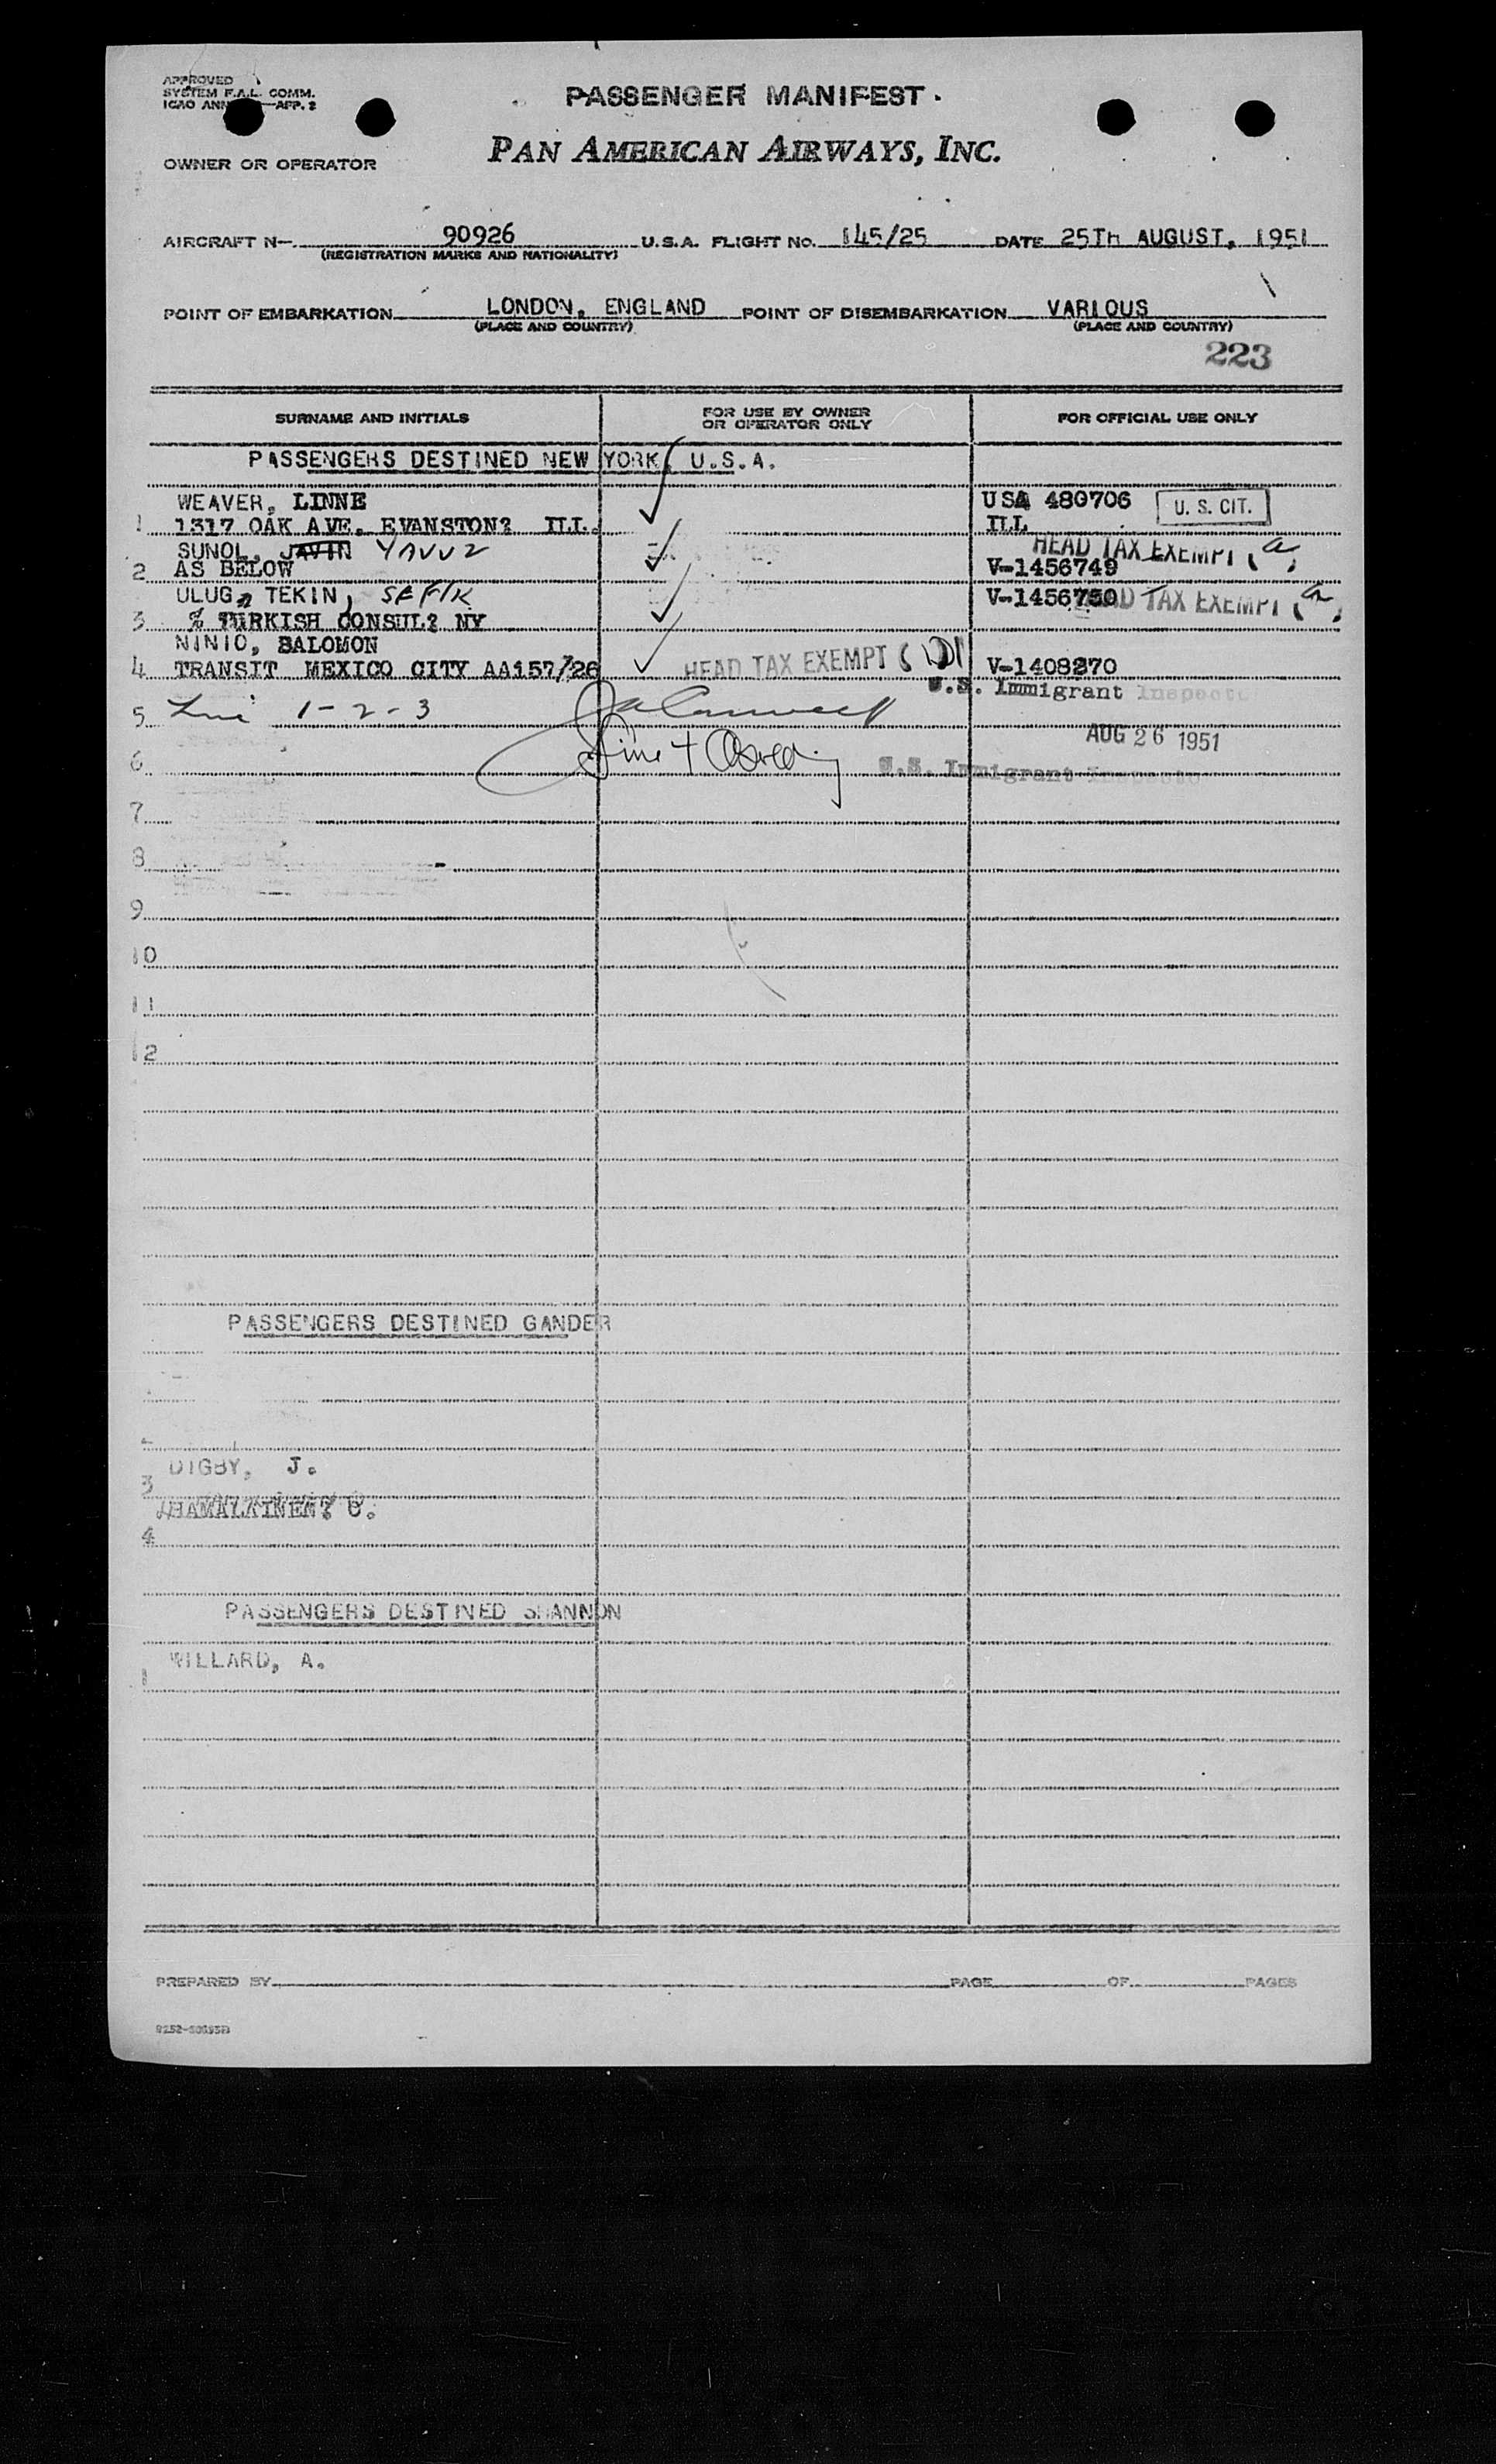 APPROVED
SYSTEM F.A.L. COMM.
ICAO ANN APP. 2
PASSENGER MANIFEST
PAN AMERICAN AIRWAYS, INC.
OWNER OR OPERATOR
AIRCRAFT N- 90926 U.S.A. FLIGHT NO. 145/25 DATE 25TH AUGUST, 1951
(REGISTRATION MARKS AND NATIONALITY)
POINT OF EMBARKATION LONDON, ENGLAND POINT OF DISEMBARKATION VARIOUS
(PLACE AND COUNTRY) (PLACE AND COUNTRY)
223
SURNAME AND INITIALS FOR USE BY OWNER OR OPERATOR ONLY FOR OFFICIAL USE ONLY
PASSENGERS DESTINED NEW YORK, U.S.A.
WEAVER, LINNE USA 480706 U. S. CIT.
1 1317 OAK AVE. EVANSTON? ILL. ILL
SUNOL, JAVIN YAVUZ HEAD TAX EXEMPT (a)
2 AS BELOW V-1456749
ULUG, TEKIN, SEFIK V-1456750 HEAD TAX EXEMPT (a)
3 % TURKISH CONSUL? NY
NINIO, SALOMON
4 TRANSIT MEXICO CITY AA157/26 HEAD TAX EXEMPT (D) V-1408270
U.S. Immigrant Inspector
5 1-2-3
AUG 26 1951
6 U.S. Immigrant Inspector
7
8
9
10
11
12
PASSENGERS DESTINED GANDER
2
DIGBY, J.
3
HAMALAINEN?
4
PASSENGERS DESTINED SHANNON
WILLARD, A.
1
PREPARED BY PAGE OF PAGES